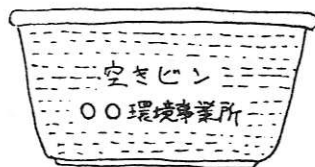 空きビン
〇〇環境事業所